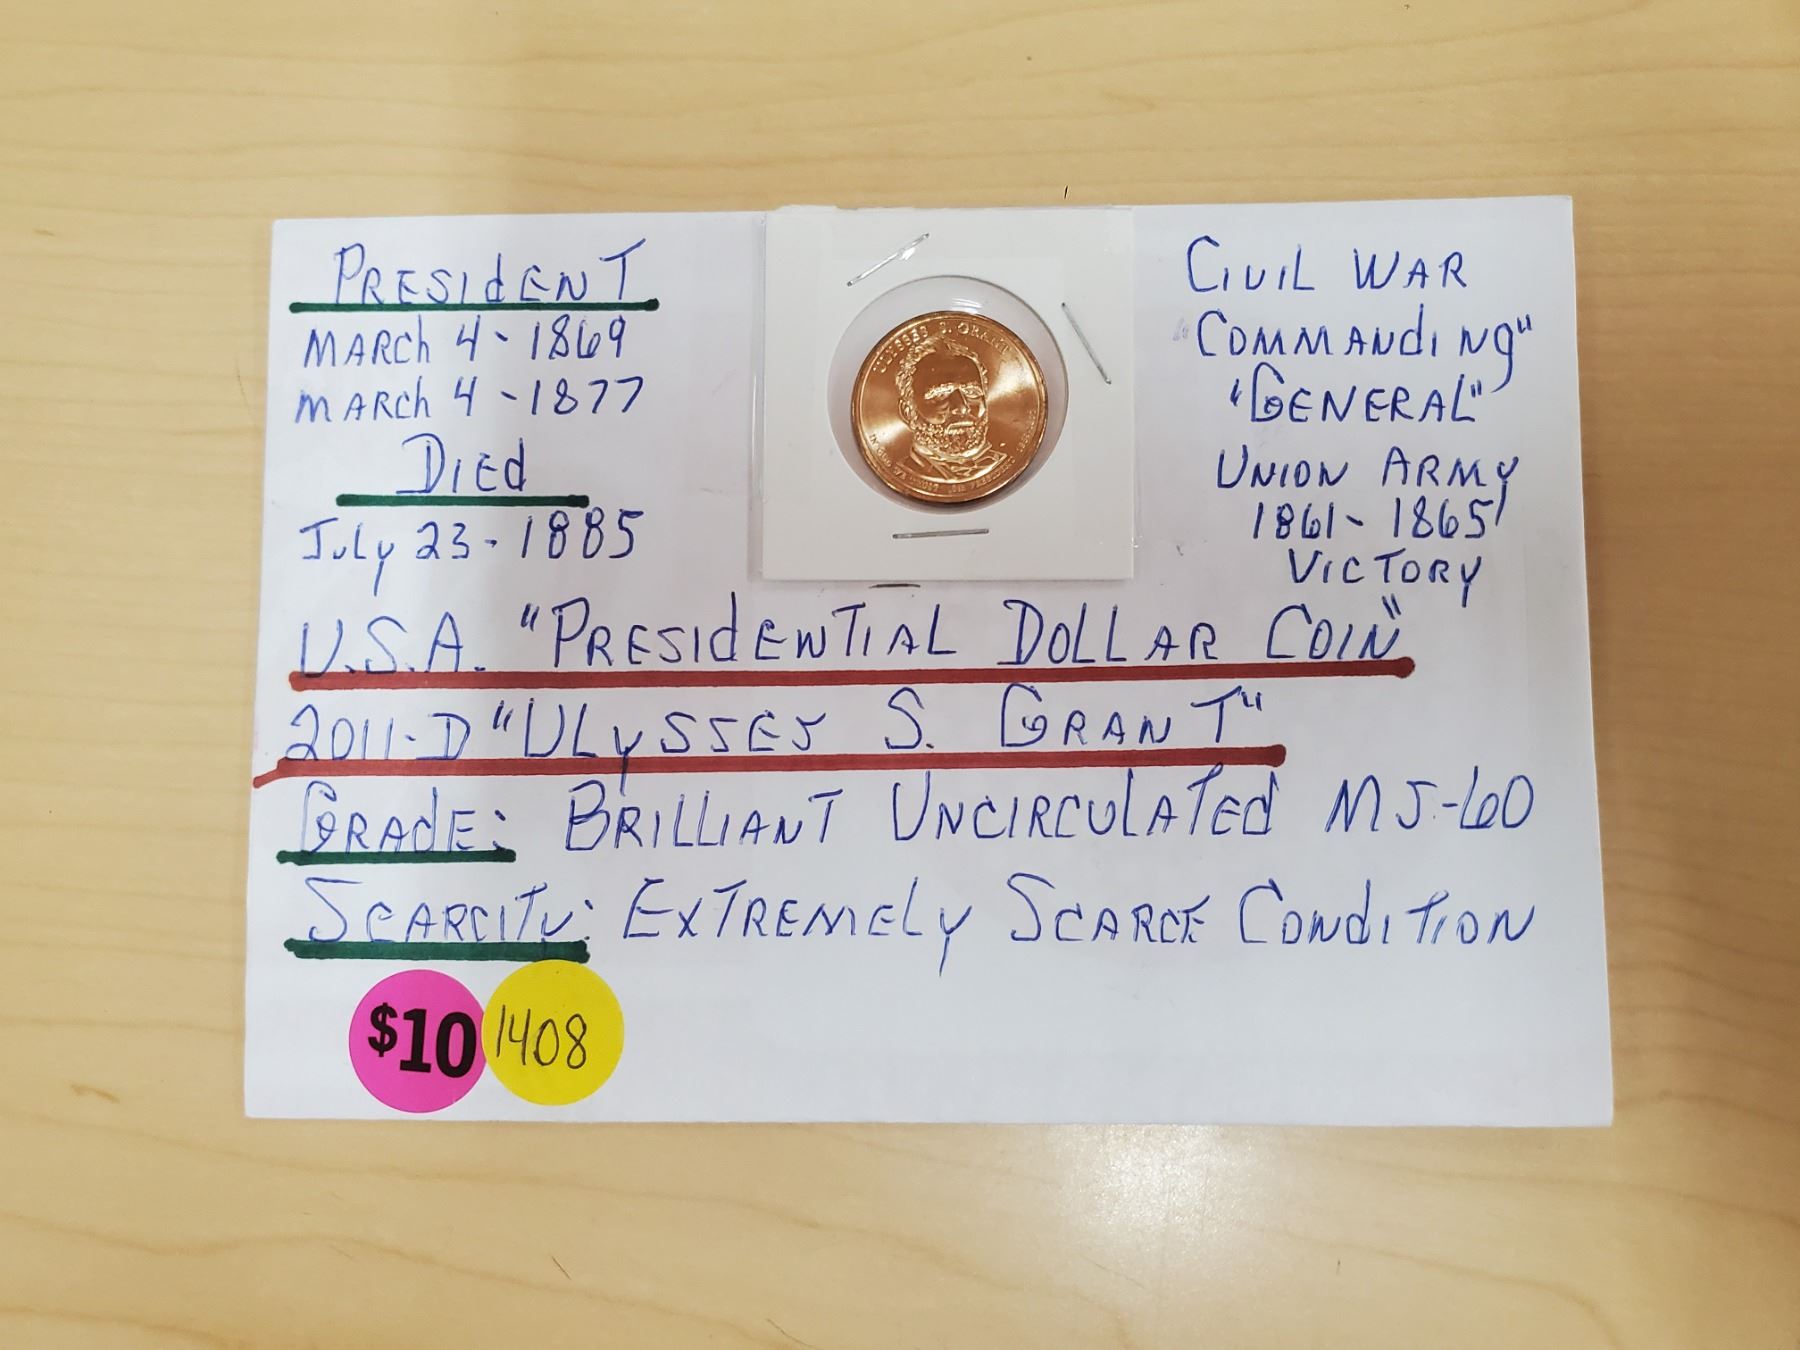 PRESIdENT
MARCh 4 - 1869
MARCh 4 - 1877
DIEd
JuLy 23 - 1885
ULYSSES S. GRANT
IN GOD WE TRUST 18TH PRESIDENT
CIVIL WAR
"COMMANdING"
"GENERAL"
UNION ARMY
1861 - 1865
VICTORY
U.S.A. "PRESIdENTIAL DOLLAR COIN"
2011-D "ULySSES S. GRANT"
GRAdE: BRILLIANT UNCIRCULATEd MS-60
SCARCITy: EXTREMELy SCARCE CONdITION
$10
1408